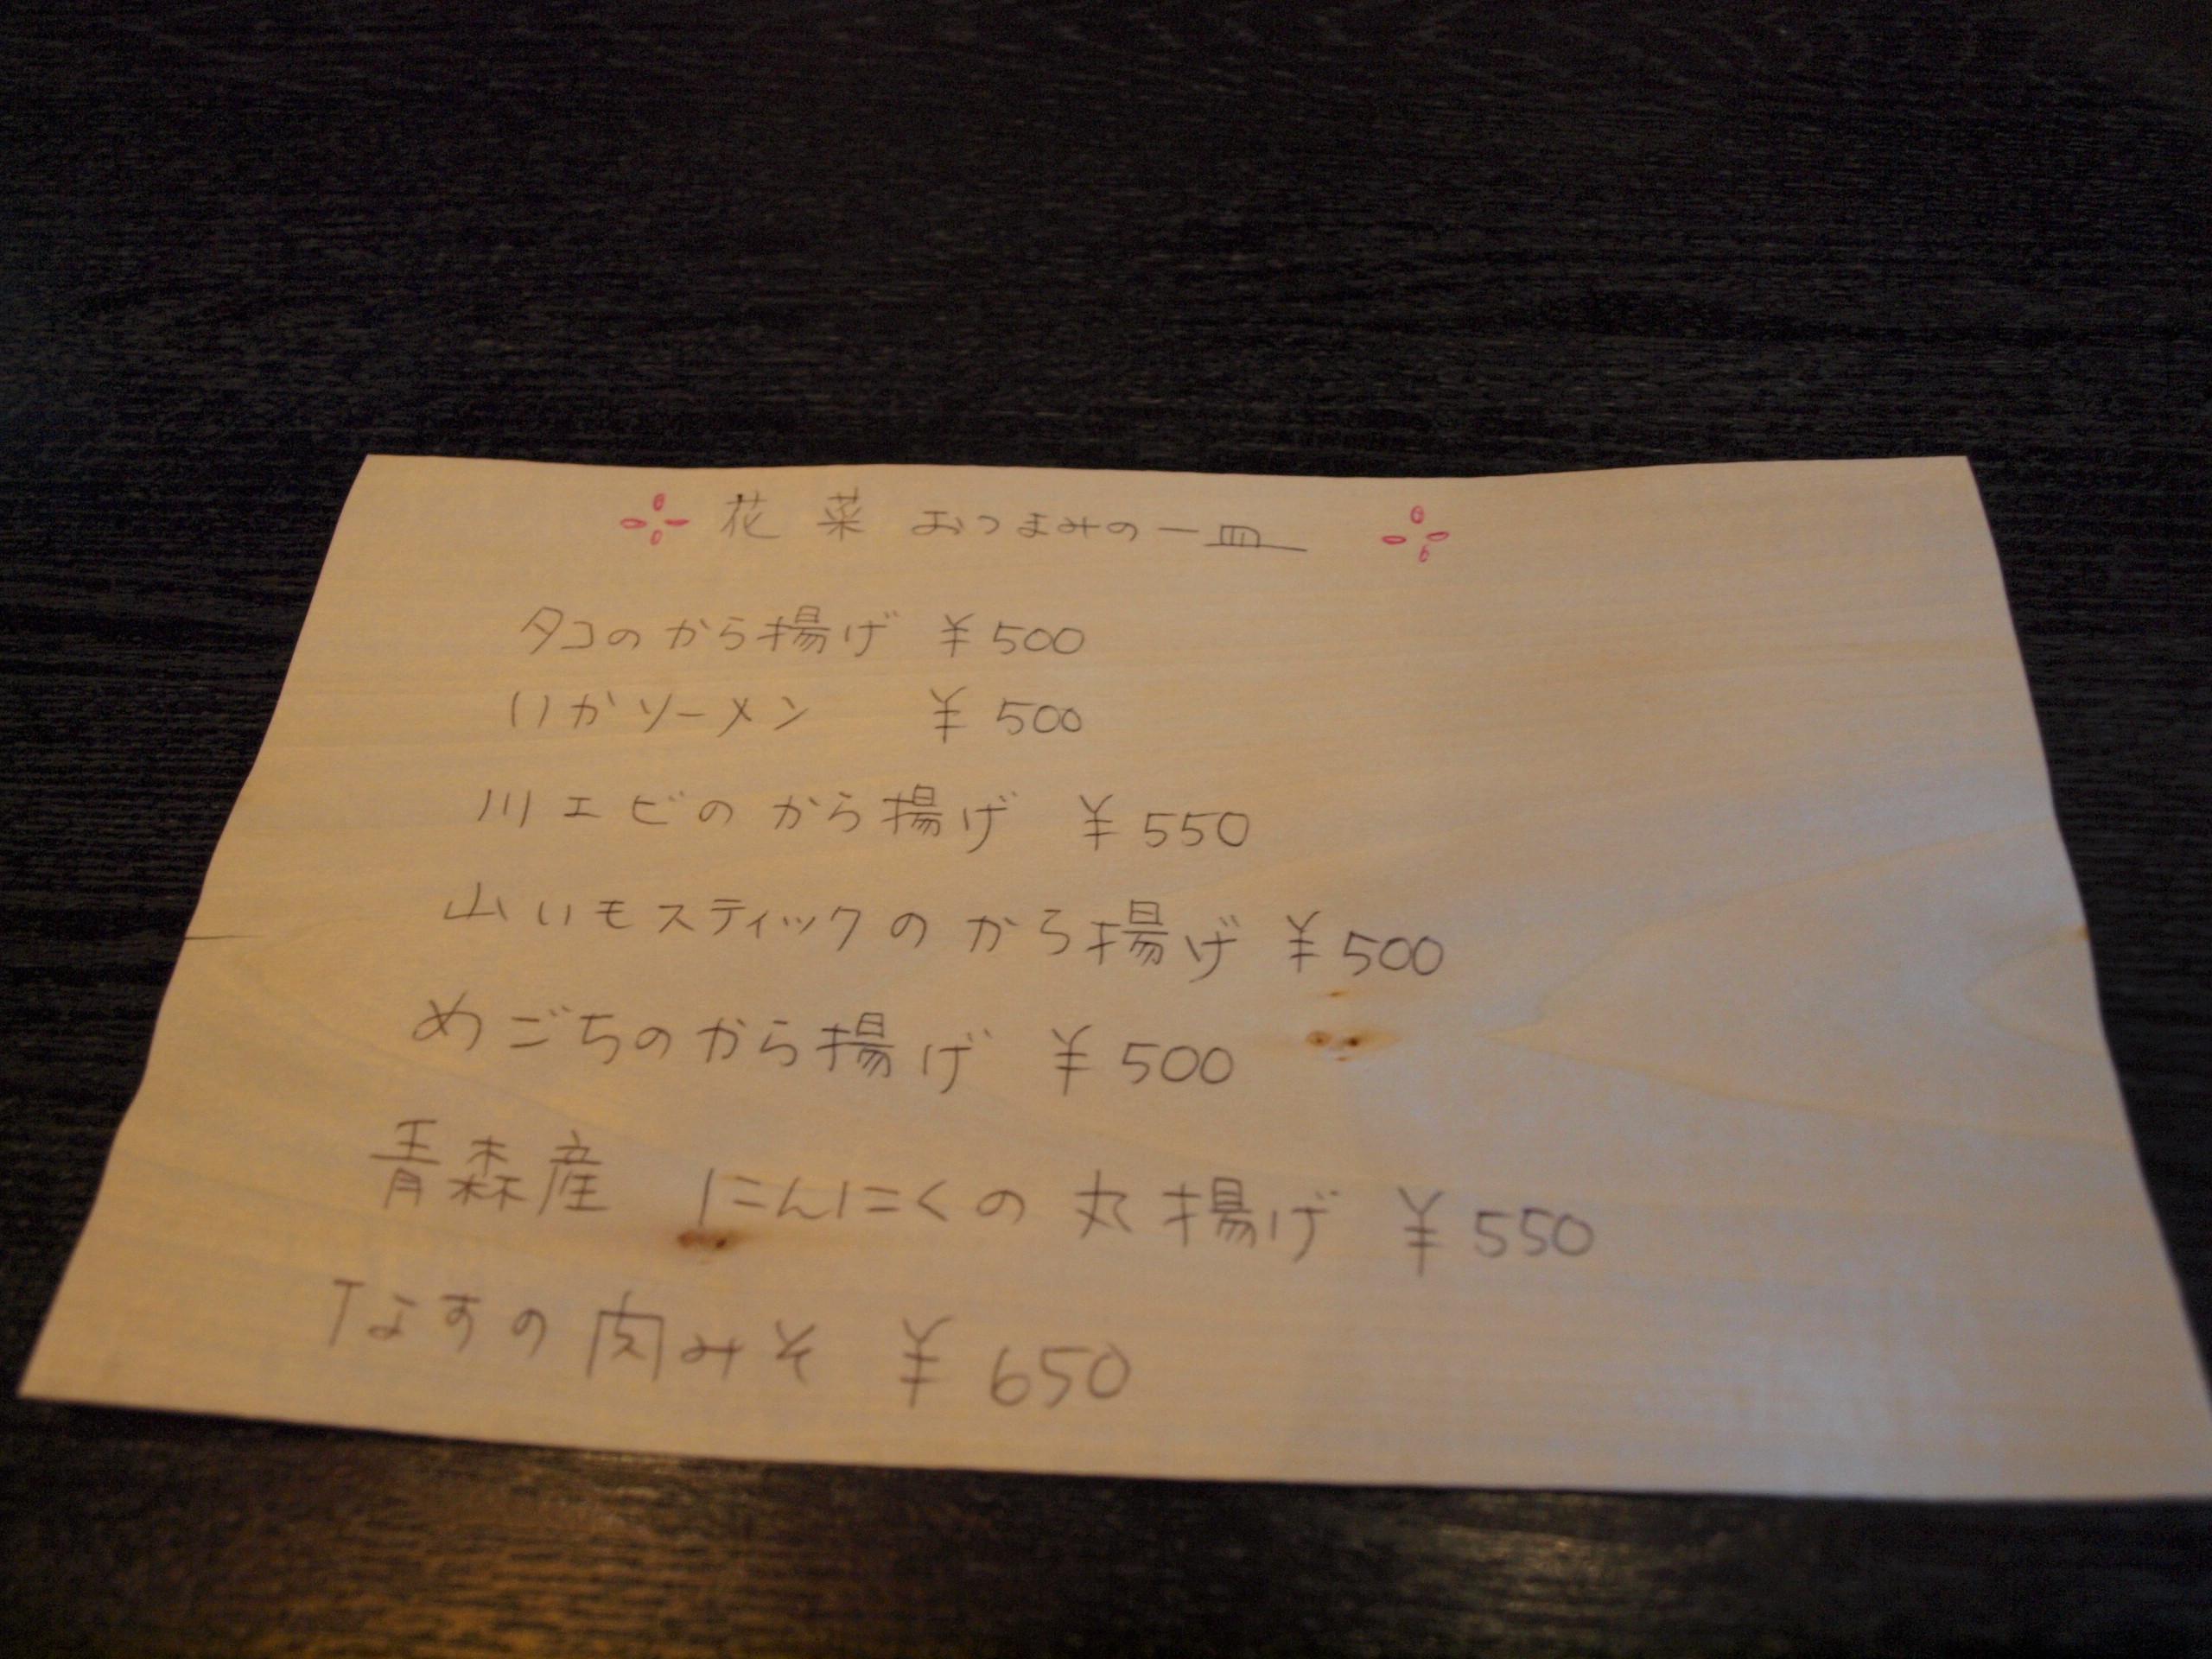 花菜 おつまみの一皿
タコのから揚げ ¥500
いかソーメン ¥500
川エビのから揚げ ¥550
山いモスティックのから揚げ ¥500
めごちのから揚げ ¥500
青森産 にんにくの丸揚げ ¥550
なすの肉みそ ¥650